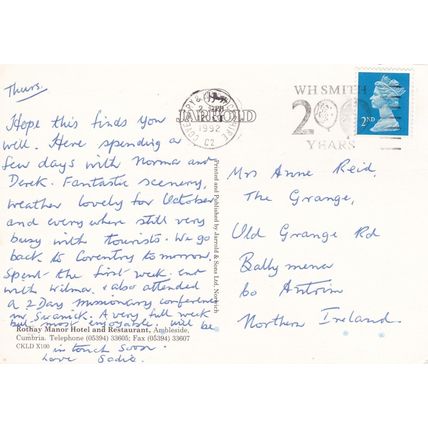 Thurs.
Hope this finds you
well. Here spending a
few days with Norma and
Derek. Fantastic scenery,
weather lovely for October
and everywhere still very
busy with tourists. We go
back to Coventry tomorrow,
spent the first week end
with Wilma. & also attended
a 2 Day missionary conference
in Swanick. A very full week
but most enjoyable. Will be
in touch soon.
Love Sadie.
Rothay Manor Hotel and Restaurant, Ambleside,
Cumbria. Telephone (05394) 33605; Fax (05394) 33607
CKLD X100
JARROLD
Printed and Published by Jarrold & Sons Ltd, Norwich
COVENTRY &
1992
C2
WH SMITH
200
YEARS
2ND
Mrs Anne Reid,
The Grange,
Old Grange Rd
Ballymena
Co Antrim
Northern Ireland.